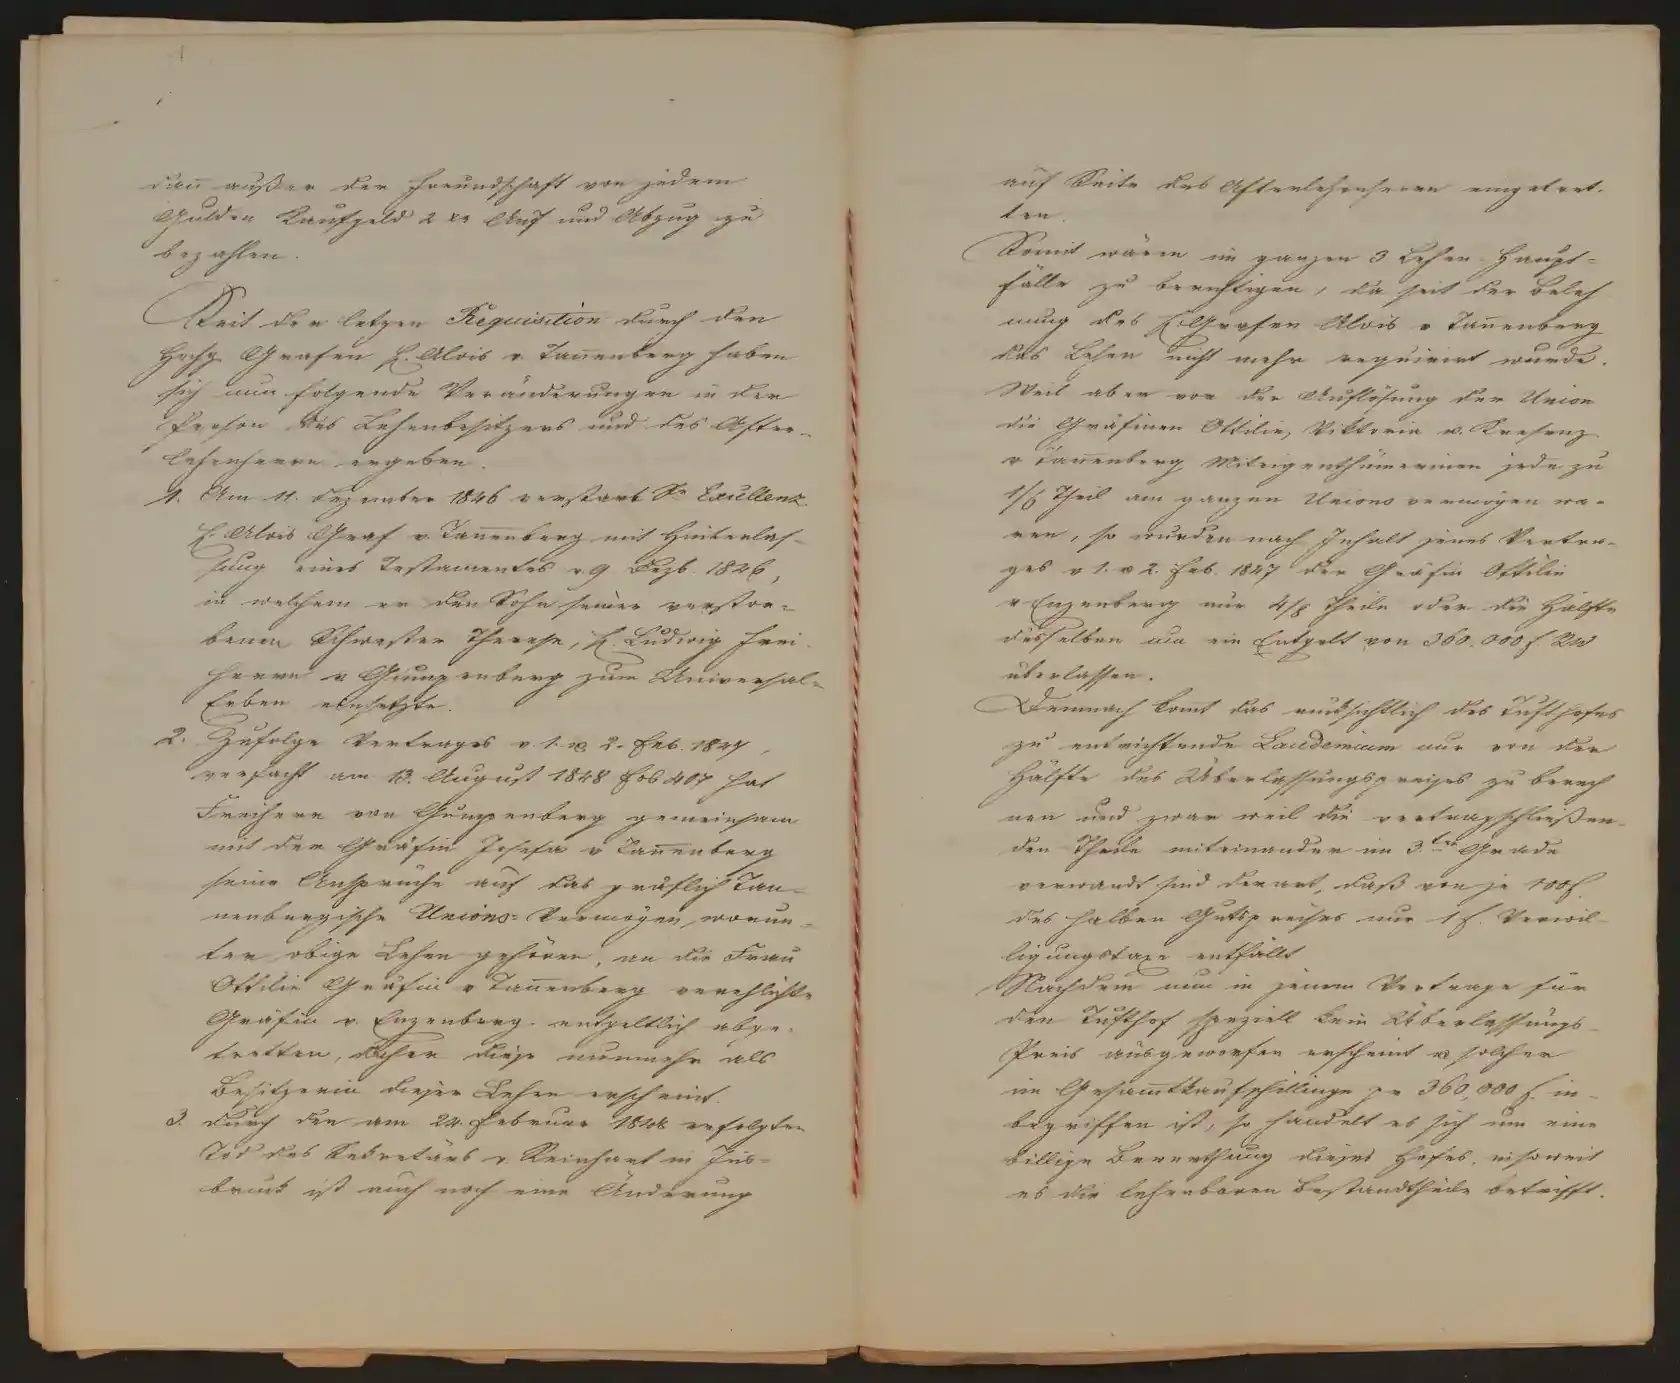 dañ außer der Freundschaft von jedem
Gulden Kaufgeld 2 xr Auf und Abzug zu
bezahlen.
Seit der letzen Requisition durch den
Hochg. Grafen H. Alois v. Tañenberg haben
sich nun folgende Veränderungen in der
Person des Lehenbesitzers und des After-
lehenherrn ergeben.
1. Am 11. Dezember 1846 verstarb Se Exzellenz
H. Alois Graf v. Tañenberg mit Hinterlas-
sung eines Testamentes v. 9 Dezb. 1826,
in welchem er den Sohn seiner verstor-
benen Schwester Therese, H. Ludwig Frei-
herrn v Gumppenberg zum Universal-
Erben einsetzte.
2. Zufolge Vertrages v. 1. u. 2. Feb. 1847,
verfacht am 13. August 1848 Fol 407 hat
Freiherr von Gumppenberg gemeinsam
mit der Gräfin Josefa v Tañenberg
seine Ansprüche auf das gräflich Tan-
nenbergische Unions-Vermögen, worun-
ter obige Lehen gehören, an die Frau
Ottilie Gräfin v Tañenberg verehlichte
Gräfin v. Enzenberg entgeltlich abge-
tretten, daher diese nunmehr als
Besitzerin dieser Lehen erscheint.
3. Durch den am 24. Februar 1848 erfolgten
Tod des Sekretärs v. Reinhart in Ins-
bruck ist auch noch eine Änderung
auf Seite des Afterlehenherrn eingetret-
ten.
Somit wären im ganzen 3 Lehen-Haupt-
fälle zu berichtigen, da seit der Beleh
nung des H. Grafen Alois v Tañenberg
das Lehen nicht mehr requirirt wurde.
Weil aber vor der Auflösung der Union
die Gräfinen Ottilie, Viktoria u. Kresenz
v Tañenberg Miteigenthümerinen jede zu
1/6 Theil am ganzen Unions vermögen wa-
ren, so wurden nach Inhalt jenes Vertra-
ges v 1. u 2. Feb. 1847 der Gräfin Ottilie
v Enzenberg nur 4/8 Theile oder die Hälfte
desselben um ein Entgelt von 360.000 f. RW
überlassen.
Demnach komt das rücksichtlich des Tufthofes
zu entrichtende Laudemium nur von der
Hälfte des Überlassungspreises zu berech
nen und zwar weil die vertragschließen-
den Theile miteinander im 3. ten Grade
verwandt sind derart, daß von je 100 f.
des halben Gutspreises nur 1 f. Verwil-
ligungstaxe entfällt
Nachdem nun in jenem Vertrage für
den Tufthof speziell kein Überlassungs-
Preis ausgeworfen erscheint u solcher
im Gesam̃tkaufschillinge pr 360,000 f. in-
begriffen ist, so handelt es sich um eine
billige Bewerthung dieses Hofes, insoweit
es die lehenbaren Bestandtheile betrifft.